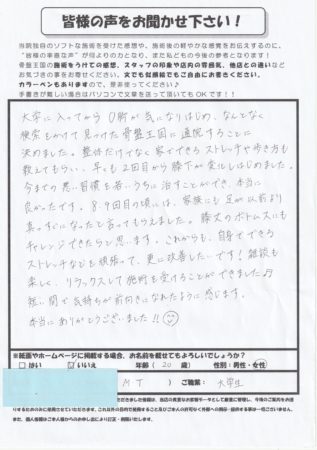 皆様の声をお聞かせ下さい！
当院独自のソフトな施術を受けた感想や、施術後の軽やかな感覚をお伝えするのに、
"皆様の率直な声"が何よりの力となり、またわたし共の今後の参考となります。
骨盤王国の施術をうけての感想、スタッフの印象や店内の雰囲気、他店との違いなど
お気づきの事をお寄せください。文でも似顔絵でもご自由にお書きください。
カラーペンもありますので、是非使ってください♪
手書きが難しい場合はパソコンで文章を送って頂いてもOKです！！
大学に入ってから O脚が気になりはじめ、なんとなく
検索をかけて見つけた骨盤王国に通院することに
決めました。整体だけでなく家でできるストレッチや歩き方も
教えてもらい、早くも2回目から膝下が変化しはじめました。
今までの悪い習慣を若いうちに治すことができ、本当に
良かったです。8、9回目の頃には、家族にも足が以前より
真っすぐになったと言ってもらえました。膝丈のボトムスにも
チャレンジできたらと思います。これからも、自身でできる
ストレッチなどを頑張って、更に改善したいです！雑談も
楽しく、リラックスして施術を受けることができました♪
短い間で気持ちが前向きになれたように感じます。
本当にありがとうございました!!
※紙面やホームページに掲載する場合、お名前を載せてもよろしいでしょうか？
□はい ☑いいえ 年齢（20）歳 性別：男性・女性
MT ご職業：大学生